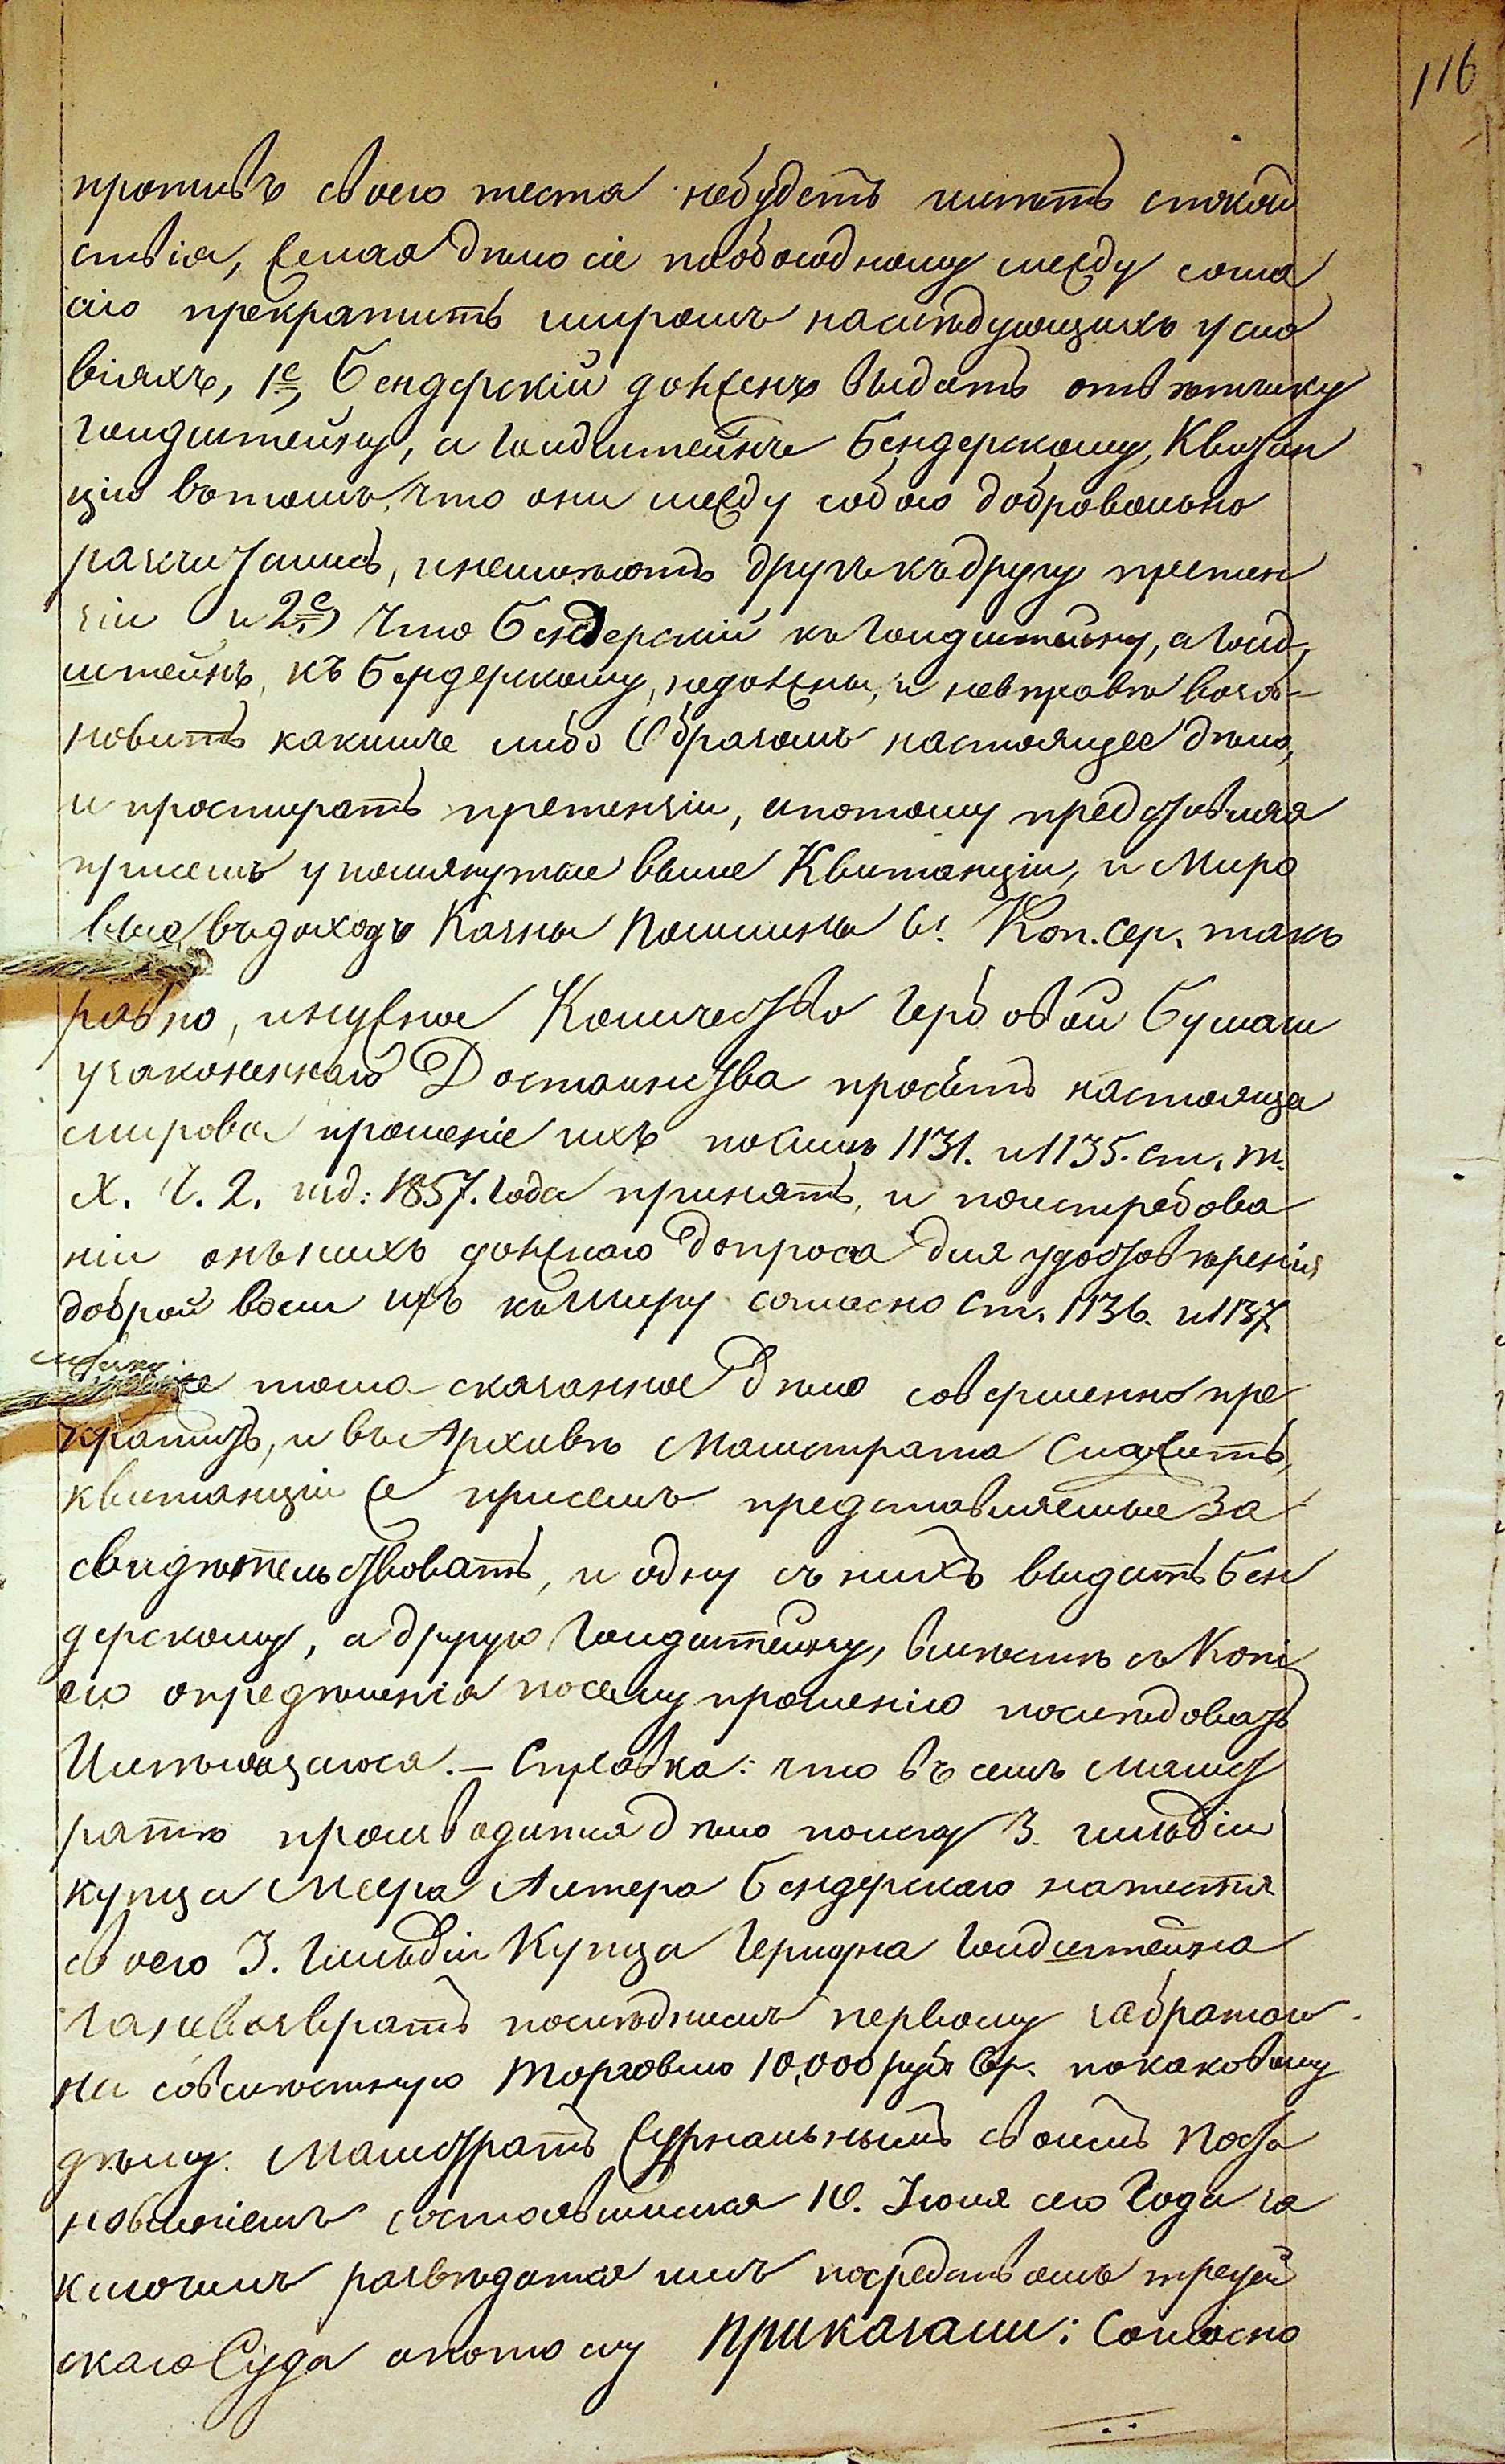 116
противъ своего тестя небудетъ имѣть спокой
ствія, желая дѣло сіе пообоюдному между согла
сію прекратить миромъ наслѣдующихъ усло
віяхъ, 1е, Бендерскій долженъ выдать отвѣтчику
Гольдштейну, а Гольдштейнъ Бендерскому, Квитан
цію вътомъ, что они между собою добровольно
расчитались, инеимѣютъ другъ къ другу претен
зіи и 2е) Что Бендерскій къ Гольдштейну, а Гольд,
штейнъ, къ Бендерскому, недолжны, и невправѣ возоб-
новить какимъ либо Образомъ настоящее дѣло,
и простирать претензіи, апотому представляя
присемъ упомянутые выше Квитанціи, и Миро
выя, въдоходъ Казны Пошлины Коп. сер. такъ
равно, инужное Количество Гербовой бумаги
узаконеннаго Достоинства просятъ настояще
мирово прошеніе ихъ посилѣ 1131. и 1135. ст. т.
X. Ч. 2. изд: 1857. Года принять, и поистребова
ніи онъ нихъ должнаго допроса для удостовѣренія
доброй воли ихъ къмиру согласно Ст. 1136. и 1137.
же тома сказанное дѣло совершенно пре
кратить, и въ Архивъ Магистрата Сложить,
квитанціи же присемъ представляемые За
свидѣтельствовать, и одну съ нихъ выдать Бен
дерскому, а другую Гольдштейну, вмѣстѣ съ Копі
ею опредѣленія посему прошенію послѣдовать
Имѣющагося. — Справка: что въ семъ Магист
ратѣ производится дѣло поиску 3. гильдіи
купца Меера Алтера Бендерскаго натестя
своего 3. Гильдіи Купца Гершна Гольдштейна
заневозвратъ послѣднимъ первому забратой
на совмѣстную Торговлю 10,000 руб. Сер. покаковому
дѣлу. Магистратъ Журнальнымъ своимъ Поста
новленіемъ состоявшимся 10. Іюля сего Года за
ключилъ развѣдатся имъ посредствомъ третей
скаго Суда апотому Приказали: Согласно